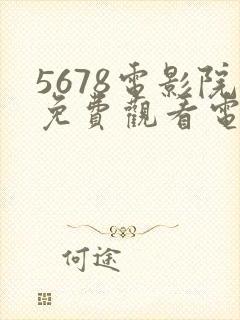 5678電影院
免費觀看電
何途